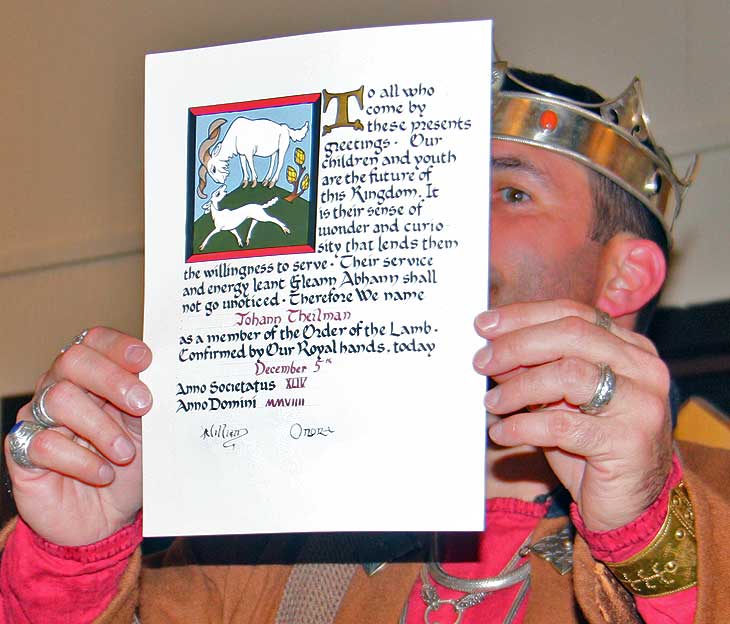 To all who
come by
these presents
greetings. Our
children and youth
are the future of
this Kingdom. It
is their sense of
wonder and curio-
sity that lends them
the willingness to serve. Their service
and energy leant Gleann Abhann shall
not go unoticed. Therefore We name
Johann Theilman
as a member of the Order of the Lamb.
Confirmed by Our Royal hands, today
December 5th
Anno Societatus XLIV
Anno Domini MMVIIII
William Onora